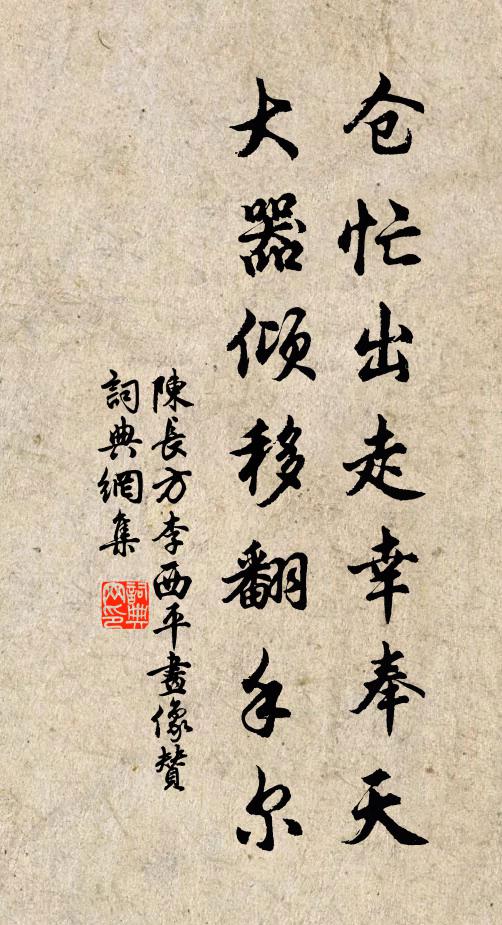 仓忙出走幸奉天
大器倾移翻手尔
陳長方李西平畫像贊
詞典網集
詞典网印